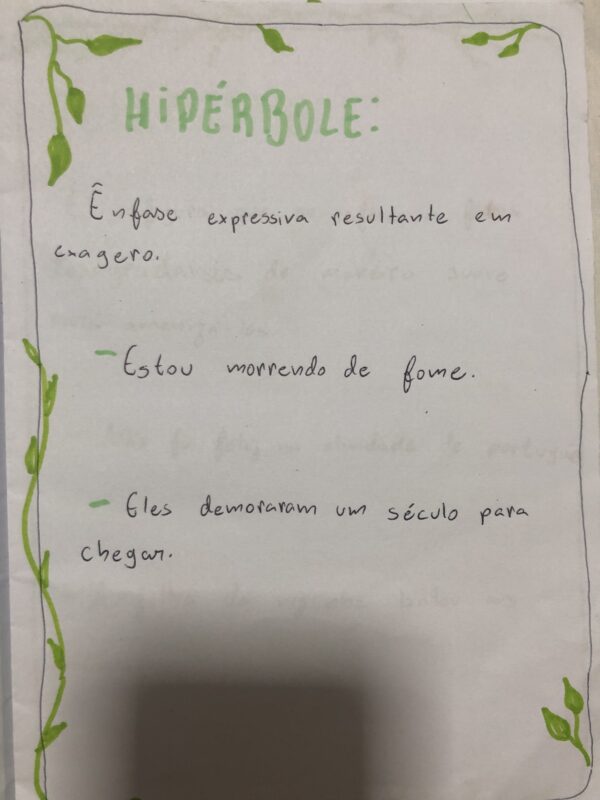 HIPÉRBOLE:
Ênfase expressiva resultante em
exagero.
- Estou morrendo de fome.
- Eles demoraram um século para
chegar.